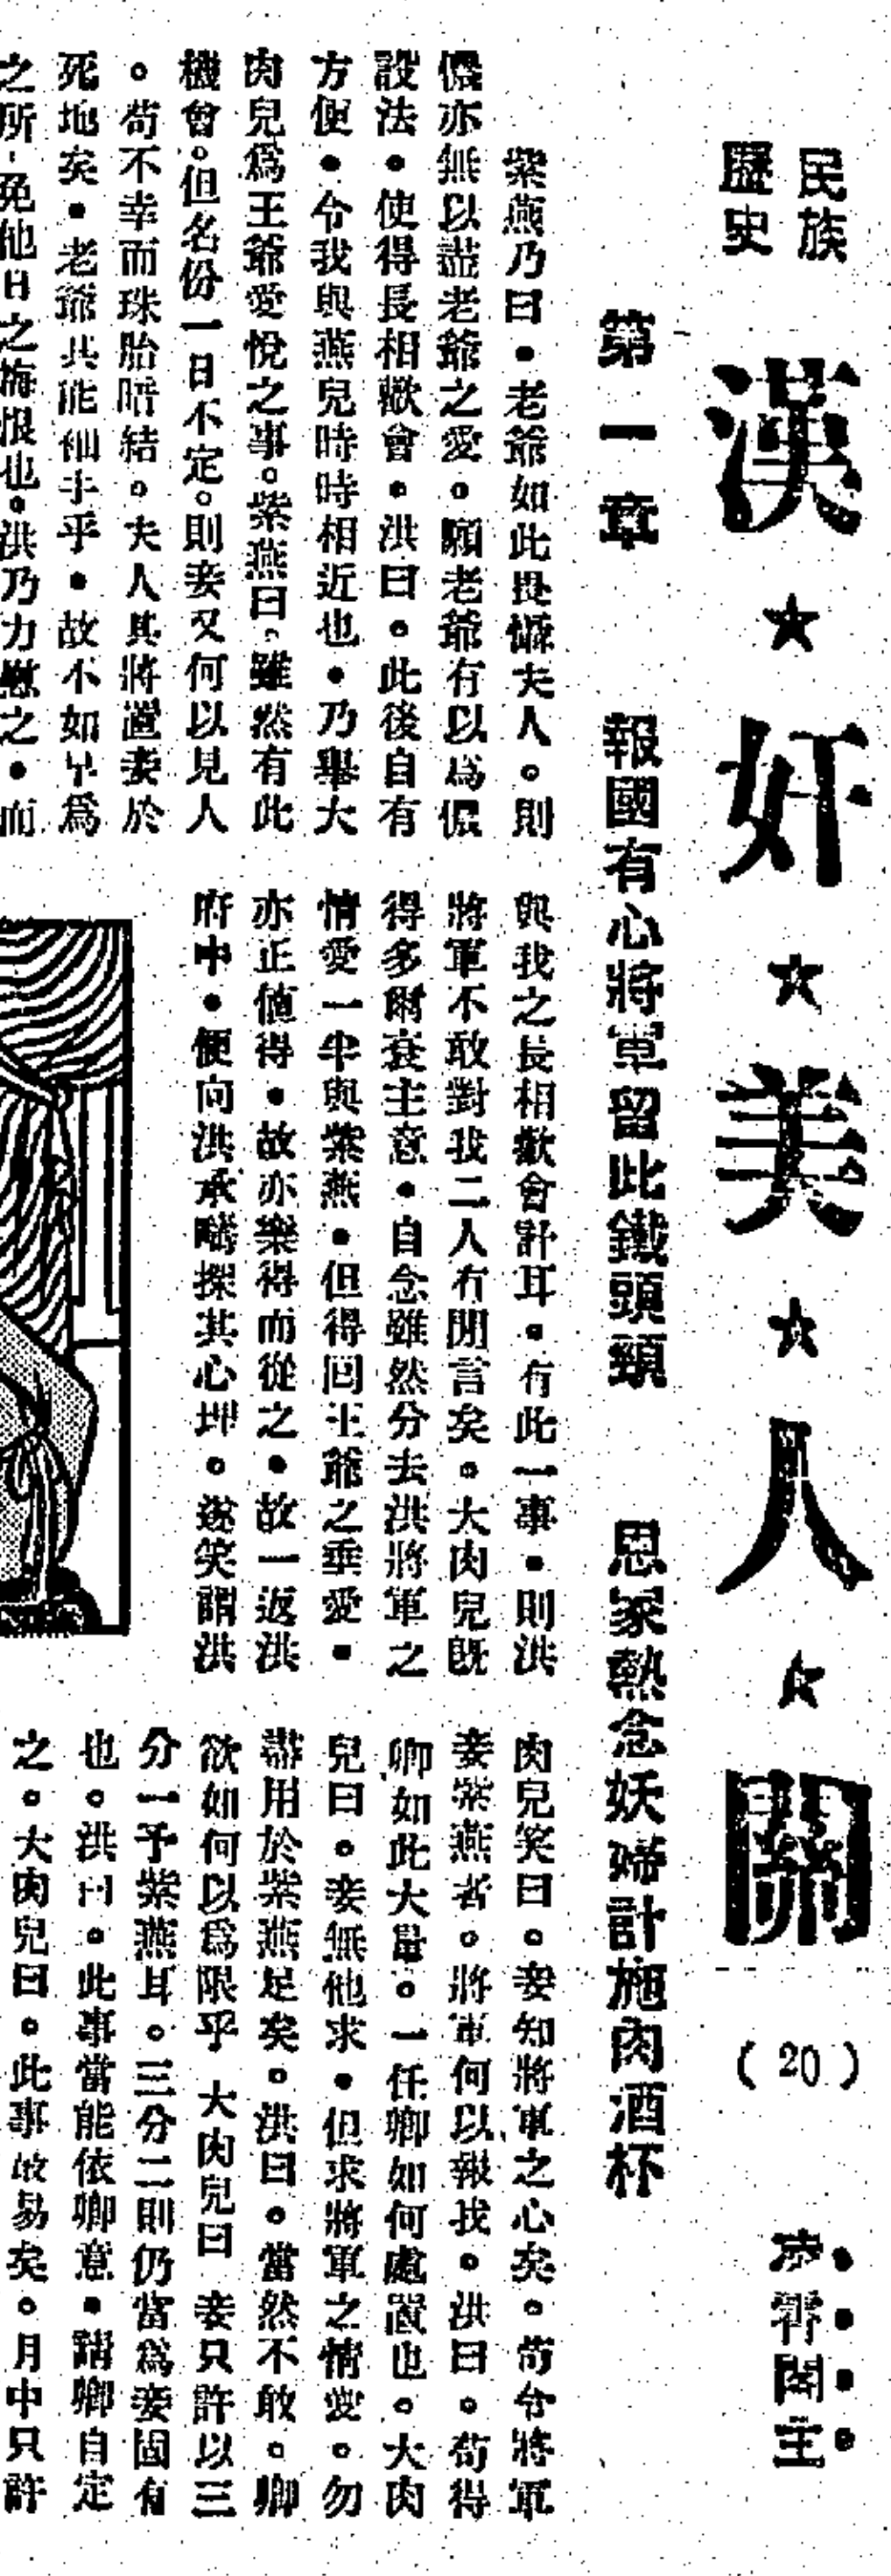 民族
歷史
漢★奸★美★人★關
(20)
凌霄閣主
第一章　報國有心將軍留此鐵頭頸　思家熱念妖婦計施肉酒杯
紫燕乃曰・老爺如此畏懼夫人。則
儂亦無以盡老爺之愛。願老爺有以爲儂
設法・使得長相歡會・洪曰。此後自有
方便・令我與燕兒時時相近也・乃舉大
肉兒爲王爺愛悅之事。紫燕曰。雖然有此
機會。但名份一日不定。則妾又何以見人
。苟不幸而珠胎暗結。夫人其將置妾於
死地矣・老爺其能袖手乎・故不如早爲
之所・免他日之悔恨也。洪乃力慰之・而
與我之長相歡會計耳。有此一事・則洪
將軍不敢對我二人有閒言矣。大肉兒既
得多爾袞主意・自念雖然分去洪將軍之
情愛一半與紫燕・但得回王爺之垂愛・
亦正值得・故亦樂得而從之・故一返洪
府中・便向洪承疇探其心坤。遂笑謂洪
肉兒笑曰。妾知將軍之心矣。苟令將軍
妾紫燕者。將軍何以報我。洪曰。苟得
卿如此大量。一任卿如何處置也。大肉
兒曰。妾無他求・但求將軍之情愛。勿
盡用於紫燕足矣。洪曰。當然不敢。卿
欲如何以爲限乎 大肉兒曰 妾只許以三
分一予紫燕耳。三分二則仍當爲妾固有
也。洪曰。此事當能依卿意・請卿自定
之。大肉兒曰。此事故易矣。月中只許